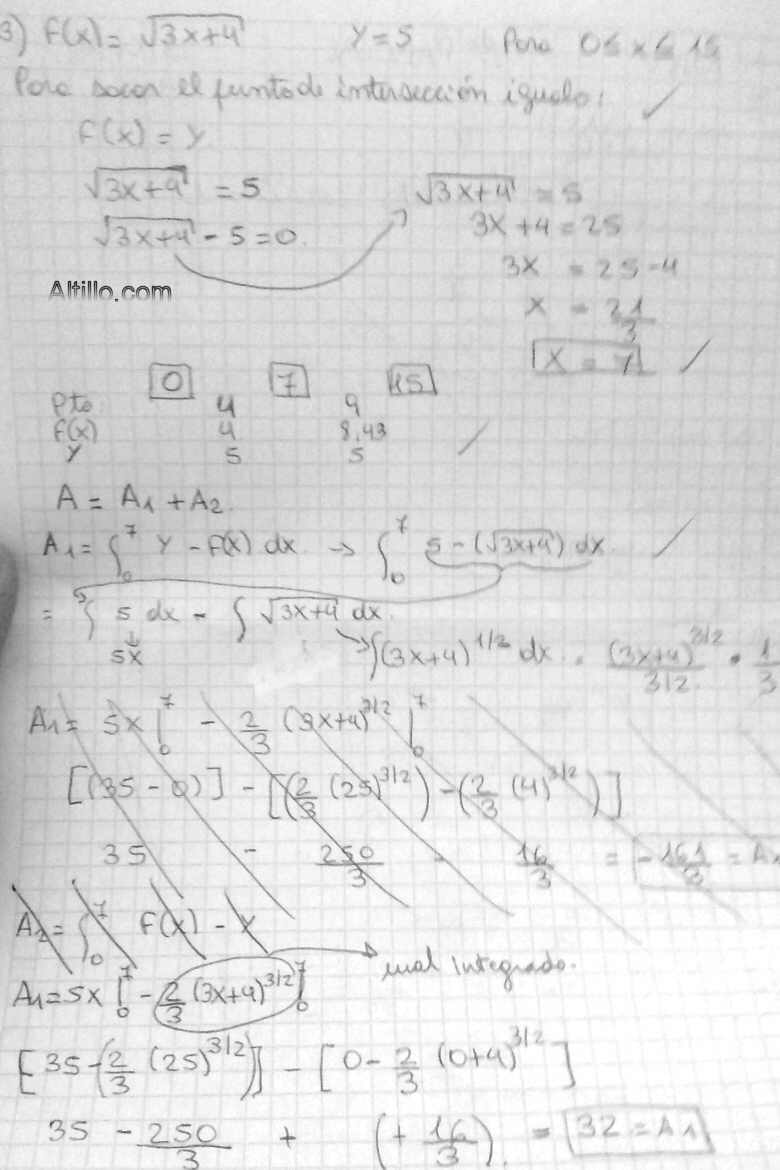 3) f(x) = √3x+4 y = 5 Para 0 ≤ x ≤ 15
Para sacar el punto de intersección igualo:
f(x) = y
√3x+4 = 5 √3x+4 = 5
√3x+4 - 5 = 0. 3x + 4 = 25
3x = 25 - 4
Altillo.com
x = 21/3
x = 7
0 7 15
Pto 4 9
f(x) 4 8,43
y 5 5
A = A1 + A2.
A1 = ∫₀⁷ y - f(x) dx → ∫₀⁷ 5 - (√3x+4) dx.
= ∫ 5 dx - ∫ √3x+4 dx.
5x ∫(3x+4)^1/2 dx = (3x+4)^3/2 / 3/2 • 1/3
A1 = 5x |₀⁷ - 2/3 (3x+4)^3/2 |₀⁷
[(35 - 0)] - [(2/3 (25)^3/2) - (2/3 (4)^3/2)]
35 - 250/3 - 16/3 = -161/3 = A1
A2 = ∫₀⁷ f(x) - y
mal integrado.
A1 = 5x |₀⁷ - 2/3 (3x+4)^3/2 |₀⁷
[35 - (2/3 (25)^3/2)] - [0 - 2/3 (0+4)^3/2]
35 - 250/3 + (+ 16/3). = 32 = A1